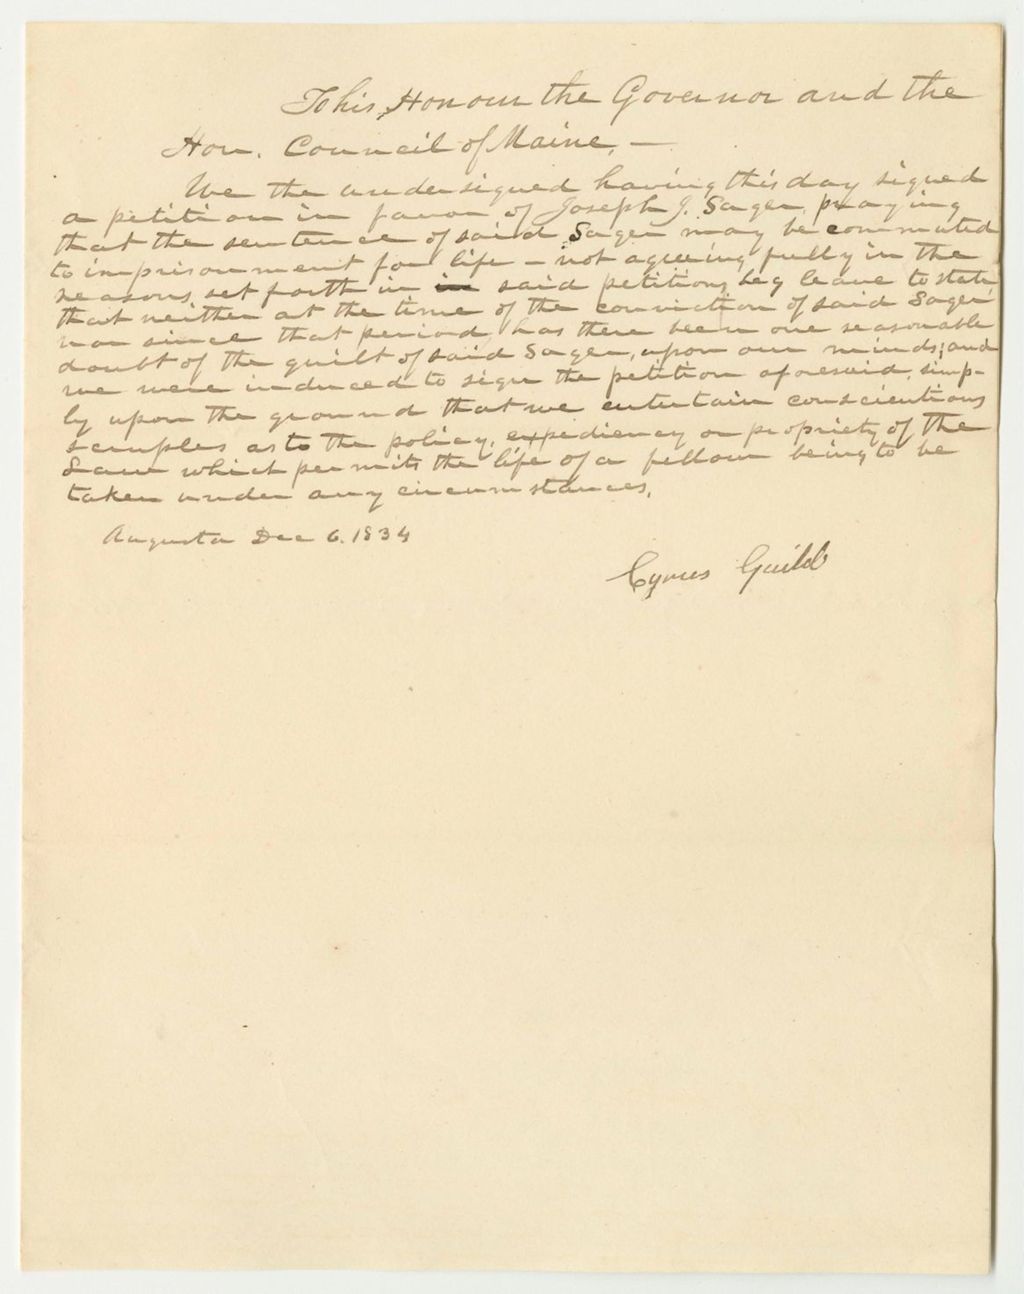 To his Honour the Governor and the
Hon. Council of Maine, —
We the undersigned having this day signed
a petition in favor of Joseph J. Sager, praying
that the sentence of said Sager may be commuted
to imprisonment for life — not agreeing fully in the
reasons set forth in said petition, beg leave to state,
that neither at the time of the conviction of said Sager
nor since that period, has there been one reasonable
doubt of the guilt of said Sager, upon our minds; and
we were induced to sign the petition aforesaid, simp-
ly upon the ground that we entertain conscientious
scruples as to the policy, expediency or propriety of the
Law which permits the life of a fellow being to be
taken under any circumstances.
Augusta Dec 6. 1834
Cyrus Guild